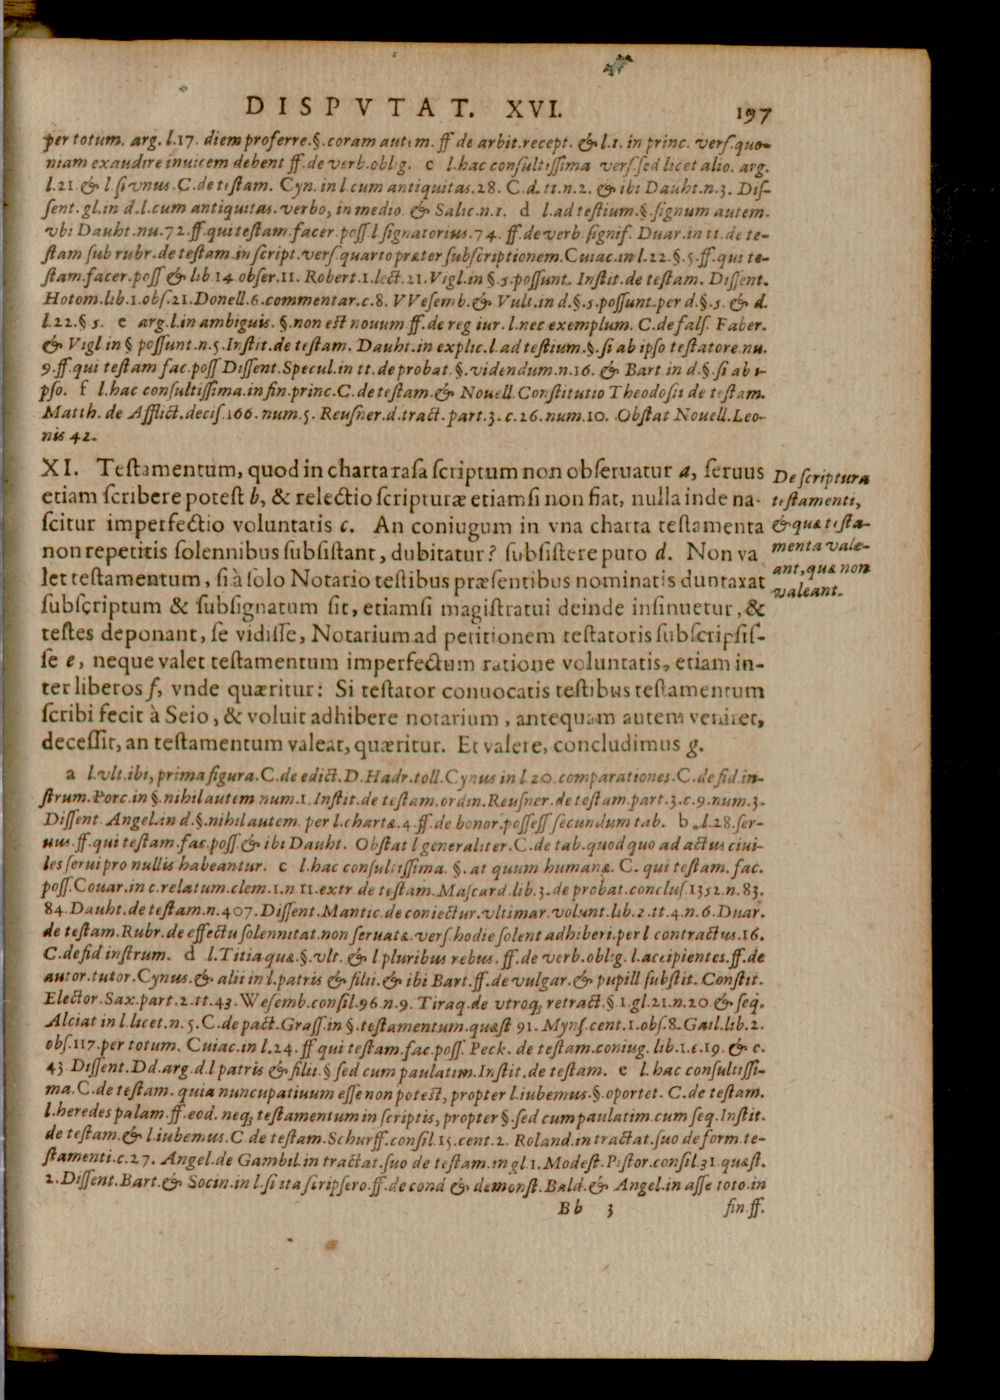 DISPVTAT. XVI. 197
per totum. arg. l.17. diem proferre.§.coram autem. ff de arbit.recept. & l.1. in princ. vers.quo-
niam exaudire inuicem debent ff.de verb.oblig. c l.hac consultissima vers.sed licet alio. arg.
l.21 & l.si vnus.C.de testam. Cyn. in l.cum antiquitas.28. C.d.tt.n.2. & ibi Dauht.n.3. Dis-
sent.gl.in d.l.cum antiquitas.verbo, in medio & Salic.n.1. d l.ad testium.§.signum autem.
vbi Dauht.nu.72.ff.qui testam.facer.poss.l signatorius.74. ff.de verb.signif. Duar.in tt.de te-
stam sub rubr.de testam.in script.vers.quarto præter subscriptionem.Cuiac.in l.22.§.5.ff.qui te-
stam.facer.poss & lib.14.obser.11. Robert.1.lect.21.Vigl.in §.5.possunt. Instit.de testam. Dissent.
Hotom.lib.1.obs.21.Donell.6.commentar.c.8. VVesemb.& Vult.in d.§.5.possunt.per d.§.5. & d.
l.22.§ 5. e arg.l.in ambiguis. §.non est nouum ff.de reg iur. l.nec exemplum. C.de fals. Faber.
& Vigl in § possunt.n.5.Instit.de testam. Dauht.in explic.l ad testium.§.si ab ipso testatore.nu.
9.ff.qui testam fac.poss Dissent.Specul.in tt.de probat.§.videndum.n.16. & Bart in d.§.si ab i-
pso. f l.hac consultissima.in fin.princ.C.de testam.& Nouell.Constitutio Theodosii de testam.
Matth. de Afflict.decis.166.num.5. Reusner.d.tract.part.3.c.26.num.10. Obstat Nouell.Leo-
nis 42.
XI. Testamentum, quod in charta rasa scriptum non obseruatur a, seruus
etiam scribere potest b, & relectio scripturæ etiamsi non fiat, nulla inde na-
scitur imperfectio voluntatis c. An coniugum in vna charta testamenta
non repetitis solennibus subsistant, dubitatur? subsistere puto d. Non va
let testamentum, si à solo Notario testibus præsentibus nominatis duntaxat
subscriptum & subsignatum sit, etiamsi magistratui deinde insinuetur, &
testes deponant, se vidisse, Notarium ad petitionem testatoris subscripsis-
se e, neque valet testamentum imperfectum ratione voluntatis, etiam in-
ter liberos f, vnde quæritur: Si testator conuocatis testibus testamentum
scribi fecit à Seio, & voluit adhibere notarium, antequam autem veniret,
decessit, an testamentum valeat, quæritur. Et valere, concludimus g.
De scriptura
testamenti,
& quæ testa-
menta vale-
ant, quæ non
valeant.
a l.vlt.ibi, prima figura.C.de edict.D.Hadr.toll.Cynus in l 20.comparationes.C.de fid.in-
strum.Porc.in §.nihil autem num.1.Instit.de testam.ordin.Reusner.de testam.part.3.c.9.num.3.
Dissent. Angel.in d.§.nihil autem. per l.chartæ.4.ff.de bonor.possess secundum tab. b.l.28.ser-
uus.ff.qui testam.fac.poss.& ibi Dauht. Obstat l generaliter.C.de tab.quod quo ad actus ciui-
les serui pro nullis habeantur. c l.hac consultissima. §. at quum humana. C. qui testam. fac.
poss.Couar.in c.relatum.clem.1.n 11.extr de testam.Mascard.lib.3.de probat.conclus.1352.n.83.
84.Dauht.de testam.n.407.Dissent.Mantic.de coniectur.vltimar.volunt.lib.2.tt.4.n.6.Duar.
de testam.Rubr.de effectu solennitat.non seruatæ.vers.hodie solent adhiberi.per l contractus.16.
C.de fid instrum. d l.Titia quæ.§.vlt. & l pluribus rebus. ff.de verb.oblig. l.accipientes.ff.de
autor.tutor.Cynus.& alii in l.patris & filii.& ibi Bart.ff.de vulgar.& pupill substit. Constit.
Elector.Sax.part.2.tt.43.Wesemb.consil.96.n.9. Tiraq.de vtroq; retract.§ 1.gl.21.n.20 & seq.
Alciat in l.licet.n.5.C.de pact.Grass.in §.testamentum.quæst 91. Myns.cent.1.obs.8.Gail.lib.2.
obs.117.per totum. Cuiac.in l.24.ff qui testam.fac.poss. Peck. de testam.coniug. lib.1.c.19.& c.
43.Dissent.Dd.arg.d.l patris & filii.§ sed cum paulatim.Instit.de testam. e l.hac consultissi-
ma.C.de testam. quia nuncupatiuum esse non potest, propter l.iubemus.§.oportet. C.de testam.
l.heredes palam.ff.eod. neq; testamentum in scriptis, propter §.sed cum paulatim.cum seq.Instit.
de testam.& l.iubemus.C de testam.Schurff.consil.15.cent.2. Roland.in tractat.suo de form.te-
stamenti.c.27. Angel.de Gambil.in tractat.suo de testam.in gl.1. Modest.Pistor.consil.31.quæst.
2.Dissent.Bart.& Socin.in l.si ita scripsero.ff.de cond & demonst.Bald.& Angel.in asse toto.in
Bb 3 fin.ff.